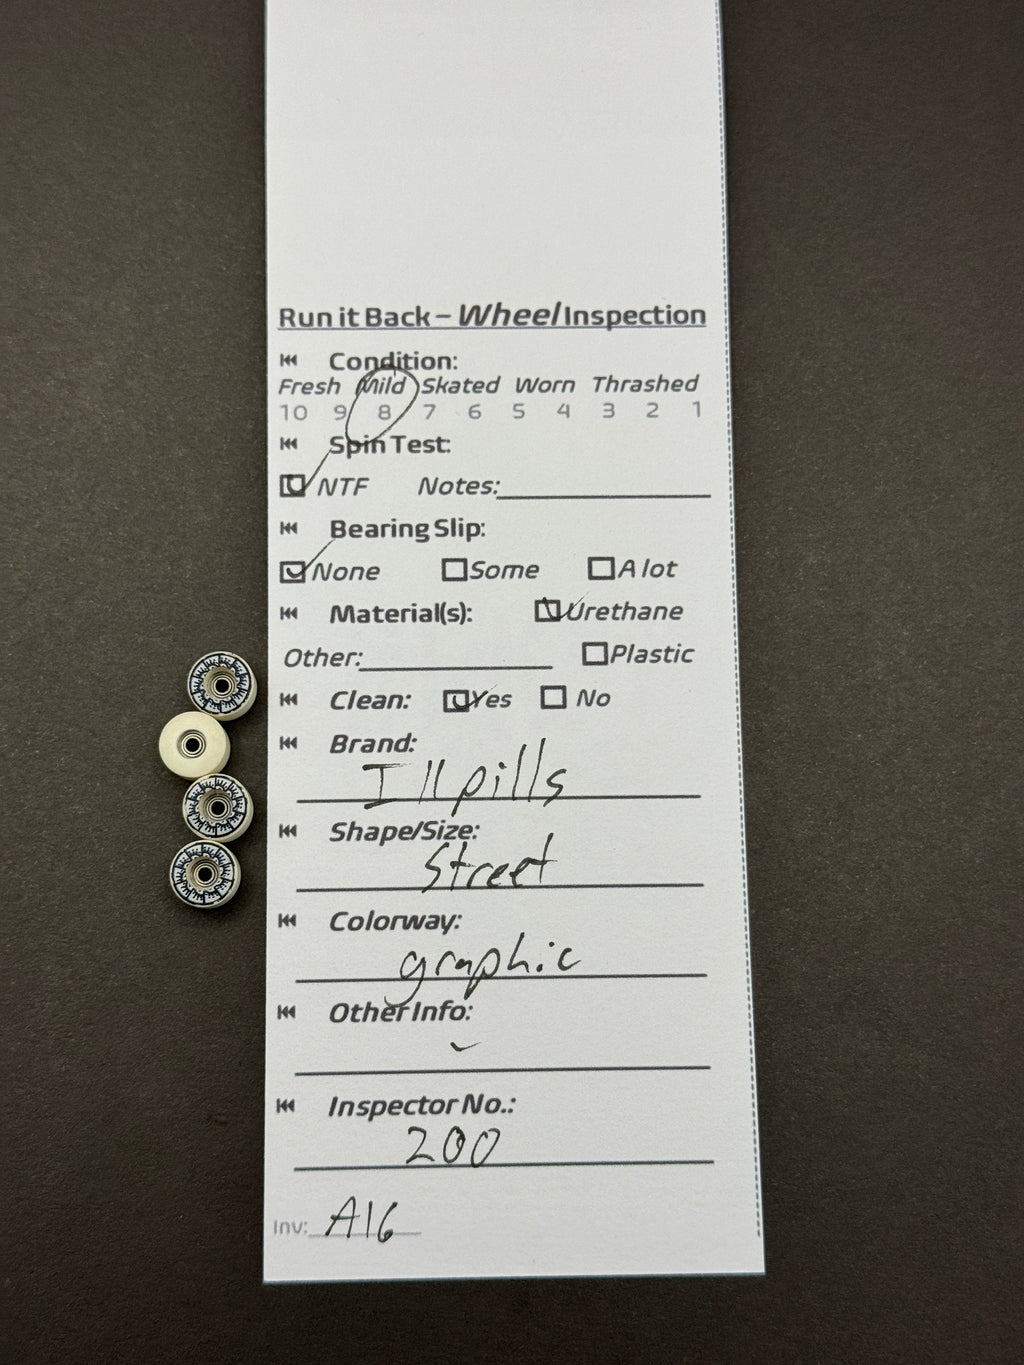 Run it Back – Wheel Inspection
Condition:
Fresh Mild Skated Worn Thrashed
10 9 8 7 6 5 4 3 2 1
Spin Test:
NTF Notes:
Bearing Slip:
None Some A lot
Material(s): Urethane
Other: Plastic
Clean: Yes No
Brand:
Illpills
Shape/Size:
Street
Colorway:
graphic
Other Info:
Inspector No.:
200
Inv: A16